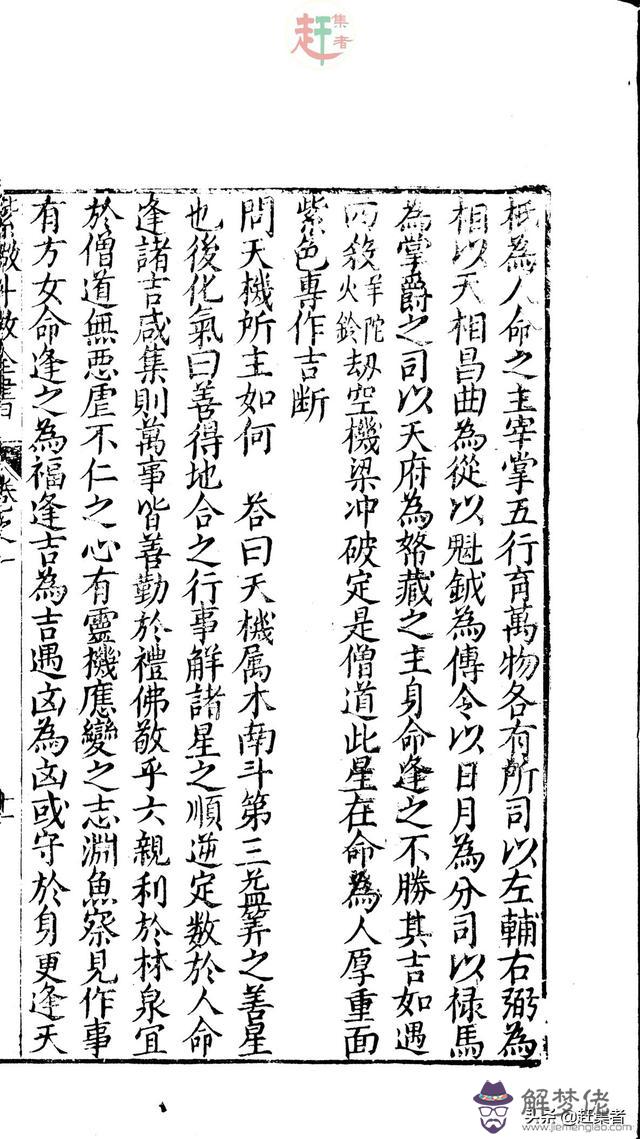 赶集者
秖為人命之主宰掌五行育萬物各有所司以左輔右弼為
相以天相昌曲為從以魁鉞為傳令以日月為分司以禄馬
為掌爵之司以天府為帑藏之主身命逢之不勝其吉如遇
四殺羊陀火鈴劫空機梁冲破定是僧道此星在命為人厚重面
紫色專作吉断
問天機所主如何 答曰天機属木南斗第三益筭之善星
也後化氣曰善得地合之行事解諸星之順逆定数於人命
逢諸吉咸集則萬事皆善勤於禮佛敬乎六親利於林泉宜
於僧道無悪虐不仁之心有靈機應變之志淵魚察見作事
有方女命逢之為福逢吉為吉遇凶為凶或守於身更逢天
紫微斗数全書 卷之一 十一
解梦佬
www.jiemenglao.com
头条@赶集者